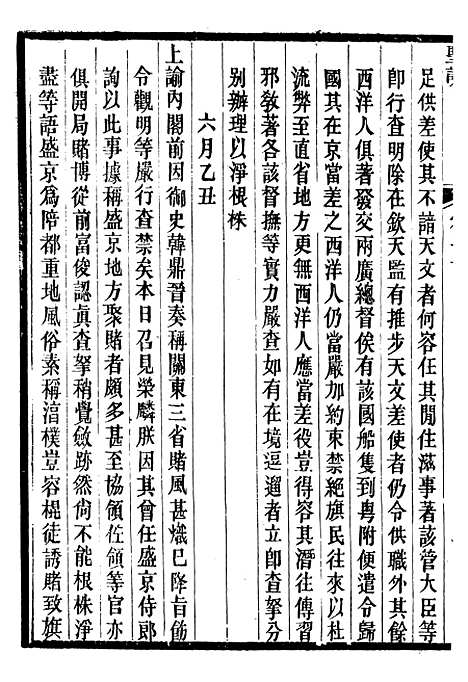 足供差使其不諳天文者何容任其閒住滋事著該管大臣等
卽行查明除在欽天監有推步天文差使者仍令供職外其餘
西洋人俱著發交兩廣總督俟有該國船隻到粵附便遣令歸
國其在京當差之西洋人仍當嚴加約束禁絕旗民往來以杜
流弊至直省地方更無西洋人應當差役豈得容其潛往傳習
邪敎著各該督撫等實力嚴查如有在境逗遛者立卽查拏分
别辦理以淨根株
六月乙丑
上諭內閣前因御史韓鼎晉奏稱關東三省賭風甚熾已降旨飭
令觀明等嚴行查禁矣本日召見榮麟朕因其曾任盛京侍郎
詢以此事據稱盛京地方聚賭者頗多甚至協領佐領等官亦
俱開局賭博從前富俊認眞查拏稍覺斂跡然尙不能根株淨
盡等語盛京爲陪都重地風俗素稱湻樸豈容棍徒誘賭致旗